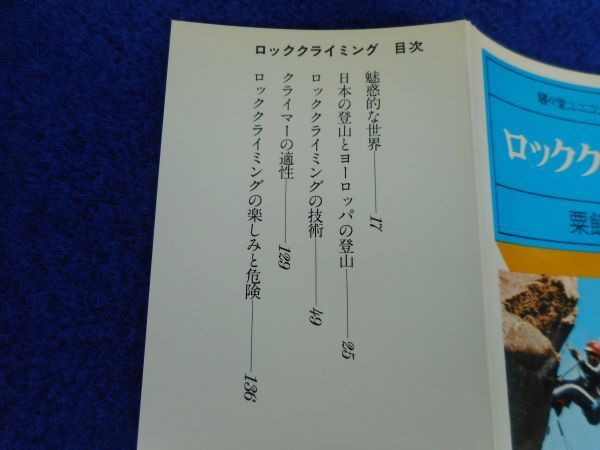 ロッククライミング　目次
魅惑的な世界――17
日本の登山とヨーロッパの登山――25
ロッククライミングの技術――49
クライマーの適性――129
ロッククライミングの楽しみと危険――136
ロックク